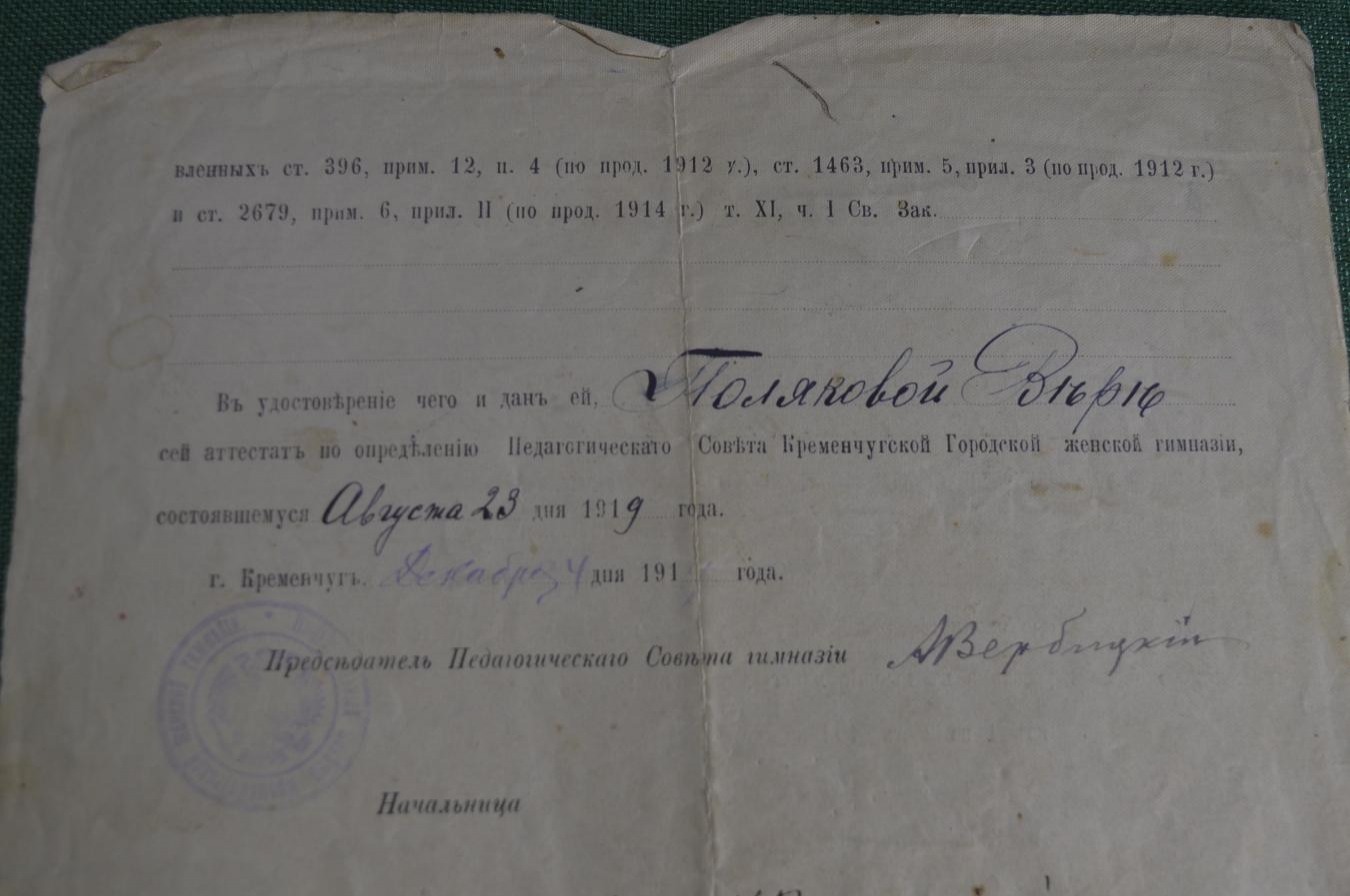 вленныхъ ст. 396, прим. 12, п. 4 (по прод. 1912 г.), ст. 1463, прим. 5, прил. 3 (по прод. 1912 г.)
и ст. 2679, прим. 6, прил. II (по прод. 1914 г.) т. XI, ч. I Св. Зак.
Въ удостовѣреніе чего и данъ ей, Поляковой Вѣрѣ
сей аттестатъ по опредѣленію Педагогическаго Совѣта Кременчугской Городской женской гимназіи,
состоявшемуся Августа 23 дня 1919 года.
г. Кременчугъ. Декабря 4 дня 191 года.
Предсѣдатель Педагогическаго Совѣта гимназіи АВербицкій
Начальница